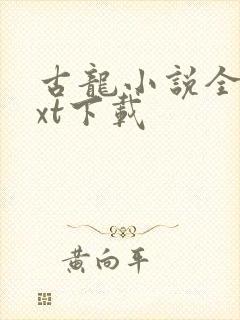 古龍小説全
xt下載
黄向平